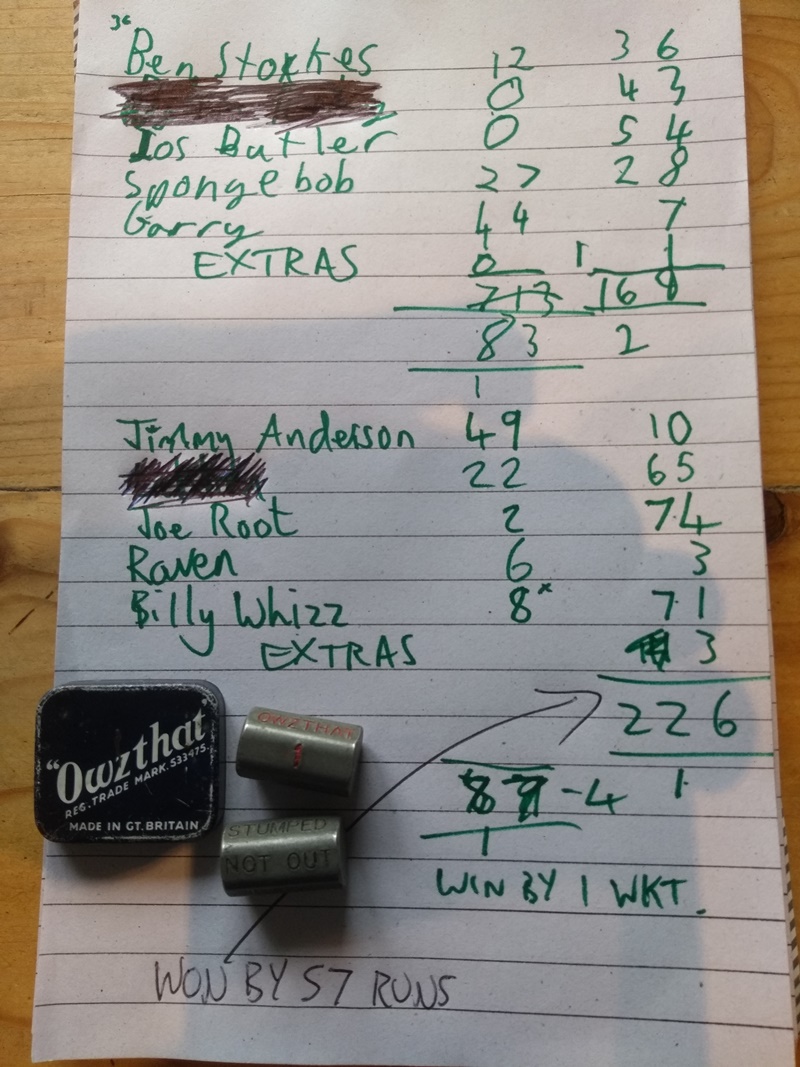 Ben Stokes 12 36
0 43
Jos Butler 0 54
Spongebob 27 28
Garry 44 7
EXTRAS 0 1 1
83 2
1
Jimmy Anderson 49 10
22 65
Joe Root 2 74
Raven 6 3
Billy Whizz 8* 71
EXTRAS 3
226
-4 1
1
WIN BY 1 WKT.
"Owzthat"
REG. TRADE MARK. 533475.
MADE IN GT. BRITAIN
OWZTHAT
1
STUMPED
NOT OUT
WON BY 57 RUNS